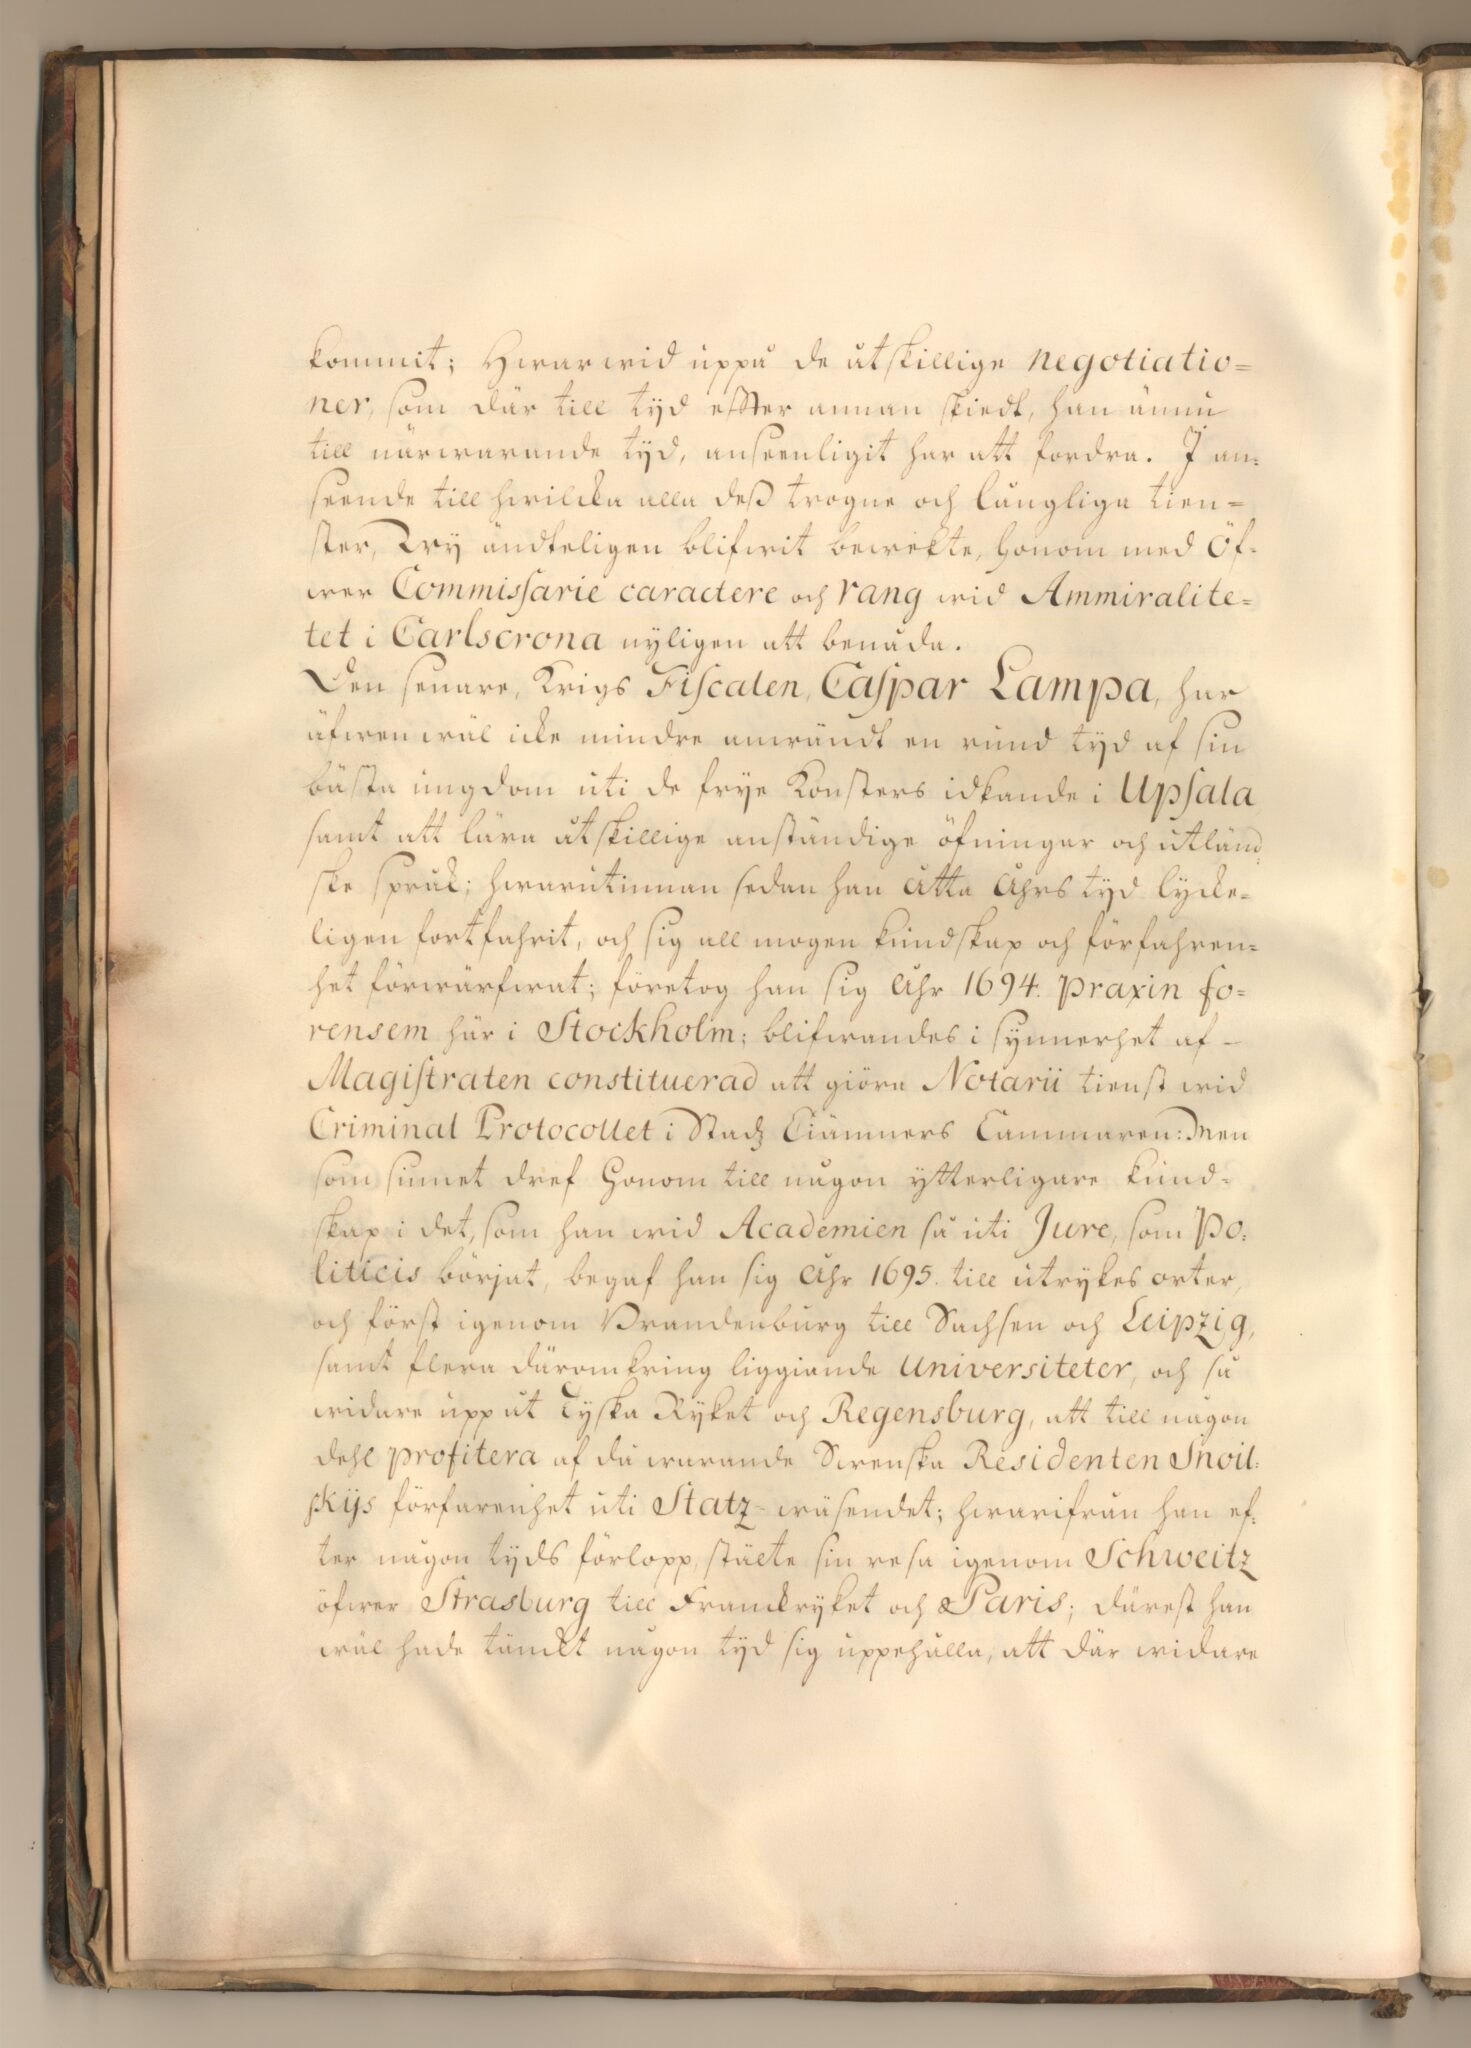 kommit; Hwarwid uppå de utskillige negotiatio=
ner, som där till tyd effter annan skiedt, han ännu
till närwarande tyd, anseenligit har att fordra. I an=
seende till hwilcka alla deß trogne och långliga tien=
ster, Wy ändteligen blifwit bewekte, honom med Öf=
wer Commissarie caractere och rang wid Ammiralite=
tet i Carlscrona nyligen att benåda.
Den senare, Krigs Fiscalen, Caspar Lampa, har
äfwen wäl icke mindre anwändt en rund tyd af sin
bästa ungdom uti de frye Konsters idkande i Upsala
samt att lära utskillige anständige öfningar och utländ=
ske språk; hwarutinnan sedan han åtta åhrs tyd lycke=
ligen fortfahrit, och sig all mogen kundskap och förfahren=
het förwärfwat; företog han sig Åhr 1694. praxin fo=
rensem här i Stockholm; blifwandes i synnerhet af
Magistraten constituerad att giöra Notarii tienst wid
Criminal Protocollet i Stadz Ciämners Cammaren: Men
som sinnet dref honom till någon ytterligare kund=
skap i det, som han wid Academien så uti Jure, som Po=
liticis börjat, begaf han sig Åhr 1695. till utrykes orter,
och först igenom Brandenburg till Sachsen och Leipzig,
samt flera däromkring liggiande Universiteter, och så
widare upp ut Tyska Ryket och Regensburg, att till någon
dehl profitera af då warande Swenska Residenten Snoil=
skijs förfarenhet uti Statz-wäsendet; hwarifrån han ef=
ter någon tyds förlopp, stälte sin resa igenom Schweitz
öfwer Strasburg till Franckryket och Paris; därest han
wäl hade tänckt någon tyd sig uppehålla, att där widare